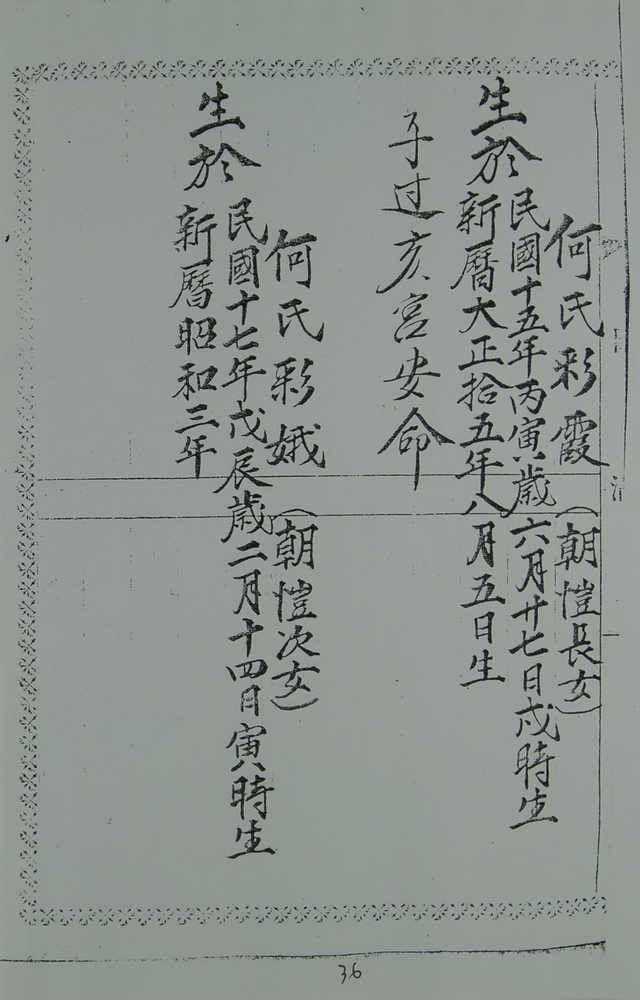 何氏彩霞（朝愷長女）
生於民國十五年丙寅歲六月廿七日戌時生
新曆大正拾五年八月五日生
子过亥宮安命
何氏彩娥（朝愷次女）
生於民國十七年戊辰歲二月十四日寅時生
新曆昭和三年
36